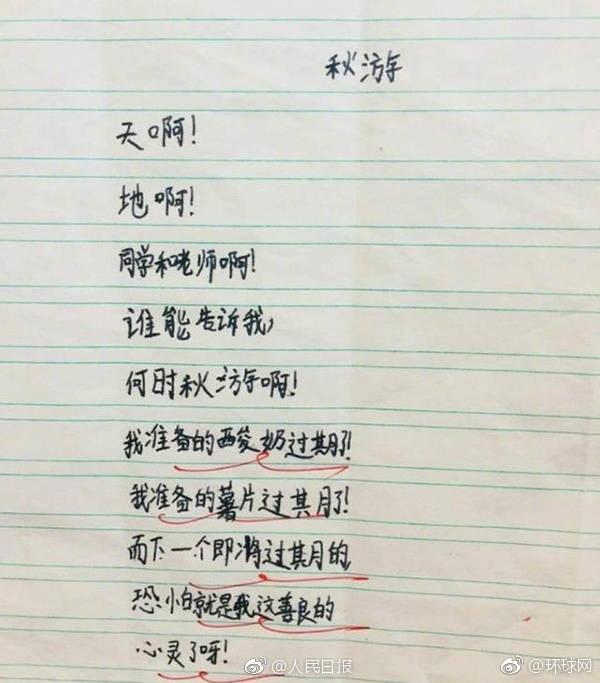 秋游
天啊！
地啊！
同学和老师啊！
谁能告诉我，
何时秋游啊！
我准备的酸奶过期了！
我准备的薯片过期了！
而下一个即将过期的
恐怕就是我这善良的
心灵了呀！
@人民日报
@环球网